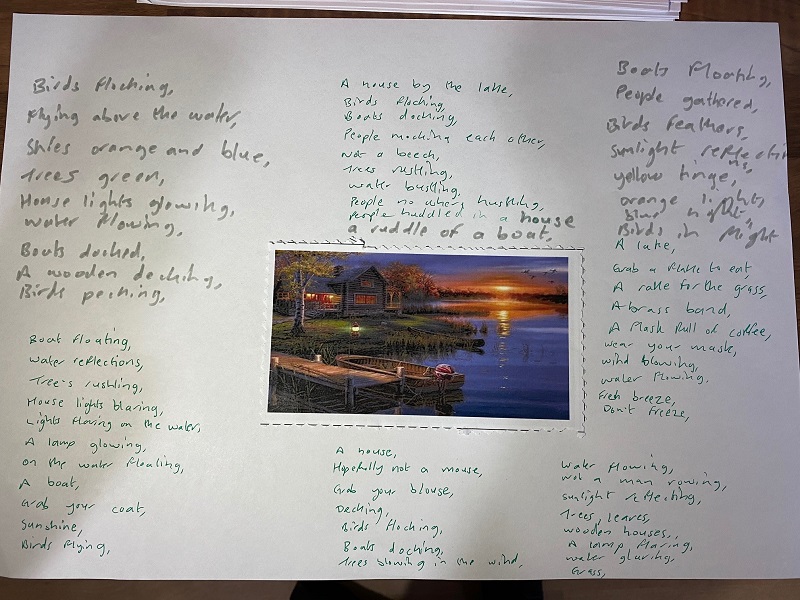 Birds flocking,
Flying above the water,
Skies orange and blue,
Trees green,
House lights glowing,
water flowing,
Boats docked,
A wooden decking,
Birds pecking,
Boat floating,
water reflections,
Tree's rustling,
House lights blaring,
Lights flaring on the water,
A lamp glowing,
on the water floating,
A boat,
Grab your coat,
Sunshine,
Birds flying,
A house by the lake,
Birds flocking,
Boats docking,
People mocking each other,
Not a beech,
Trees rustling,
water bustling,
People no where hustling,
People huddled in a house
a ruddle of a boat,
A house,
Hopefully not a mouse,
Grab your blouse,
Decking,
Birds flocking,
Boats docking,
Trees blowing in the wind,
Boats Floating,
People gathered,
Birds feathers,
sunlight reflecting,
yellow tinge,
orange light,
Birds in flight
A lake,
Grab a flake to eat,
A rake for the grass,
A brass band,
A flask full of coffee,
wear your mask,
wind blowing,
water flowing,
Fresh breeze,
Don't freeze,
Water flowing,
Not a man rowing,
sunlight reflecting,
Trees, leaves,
wooden houses,
A lamp flaring,
water glaring,
Grass,